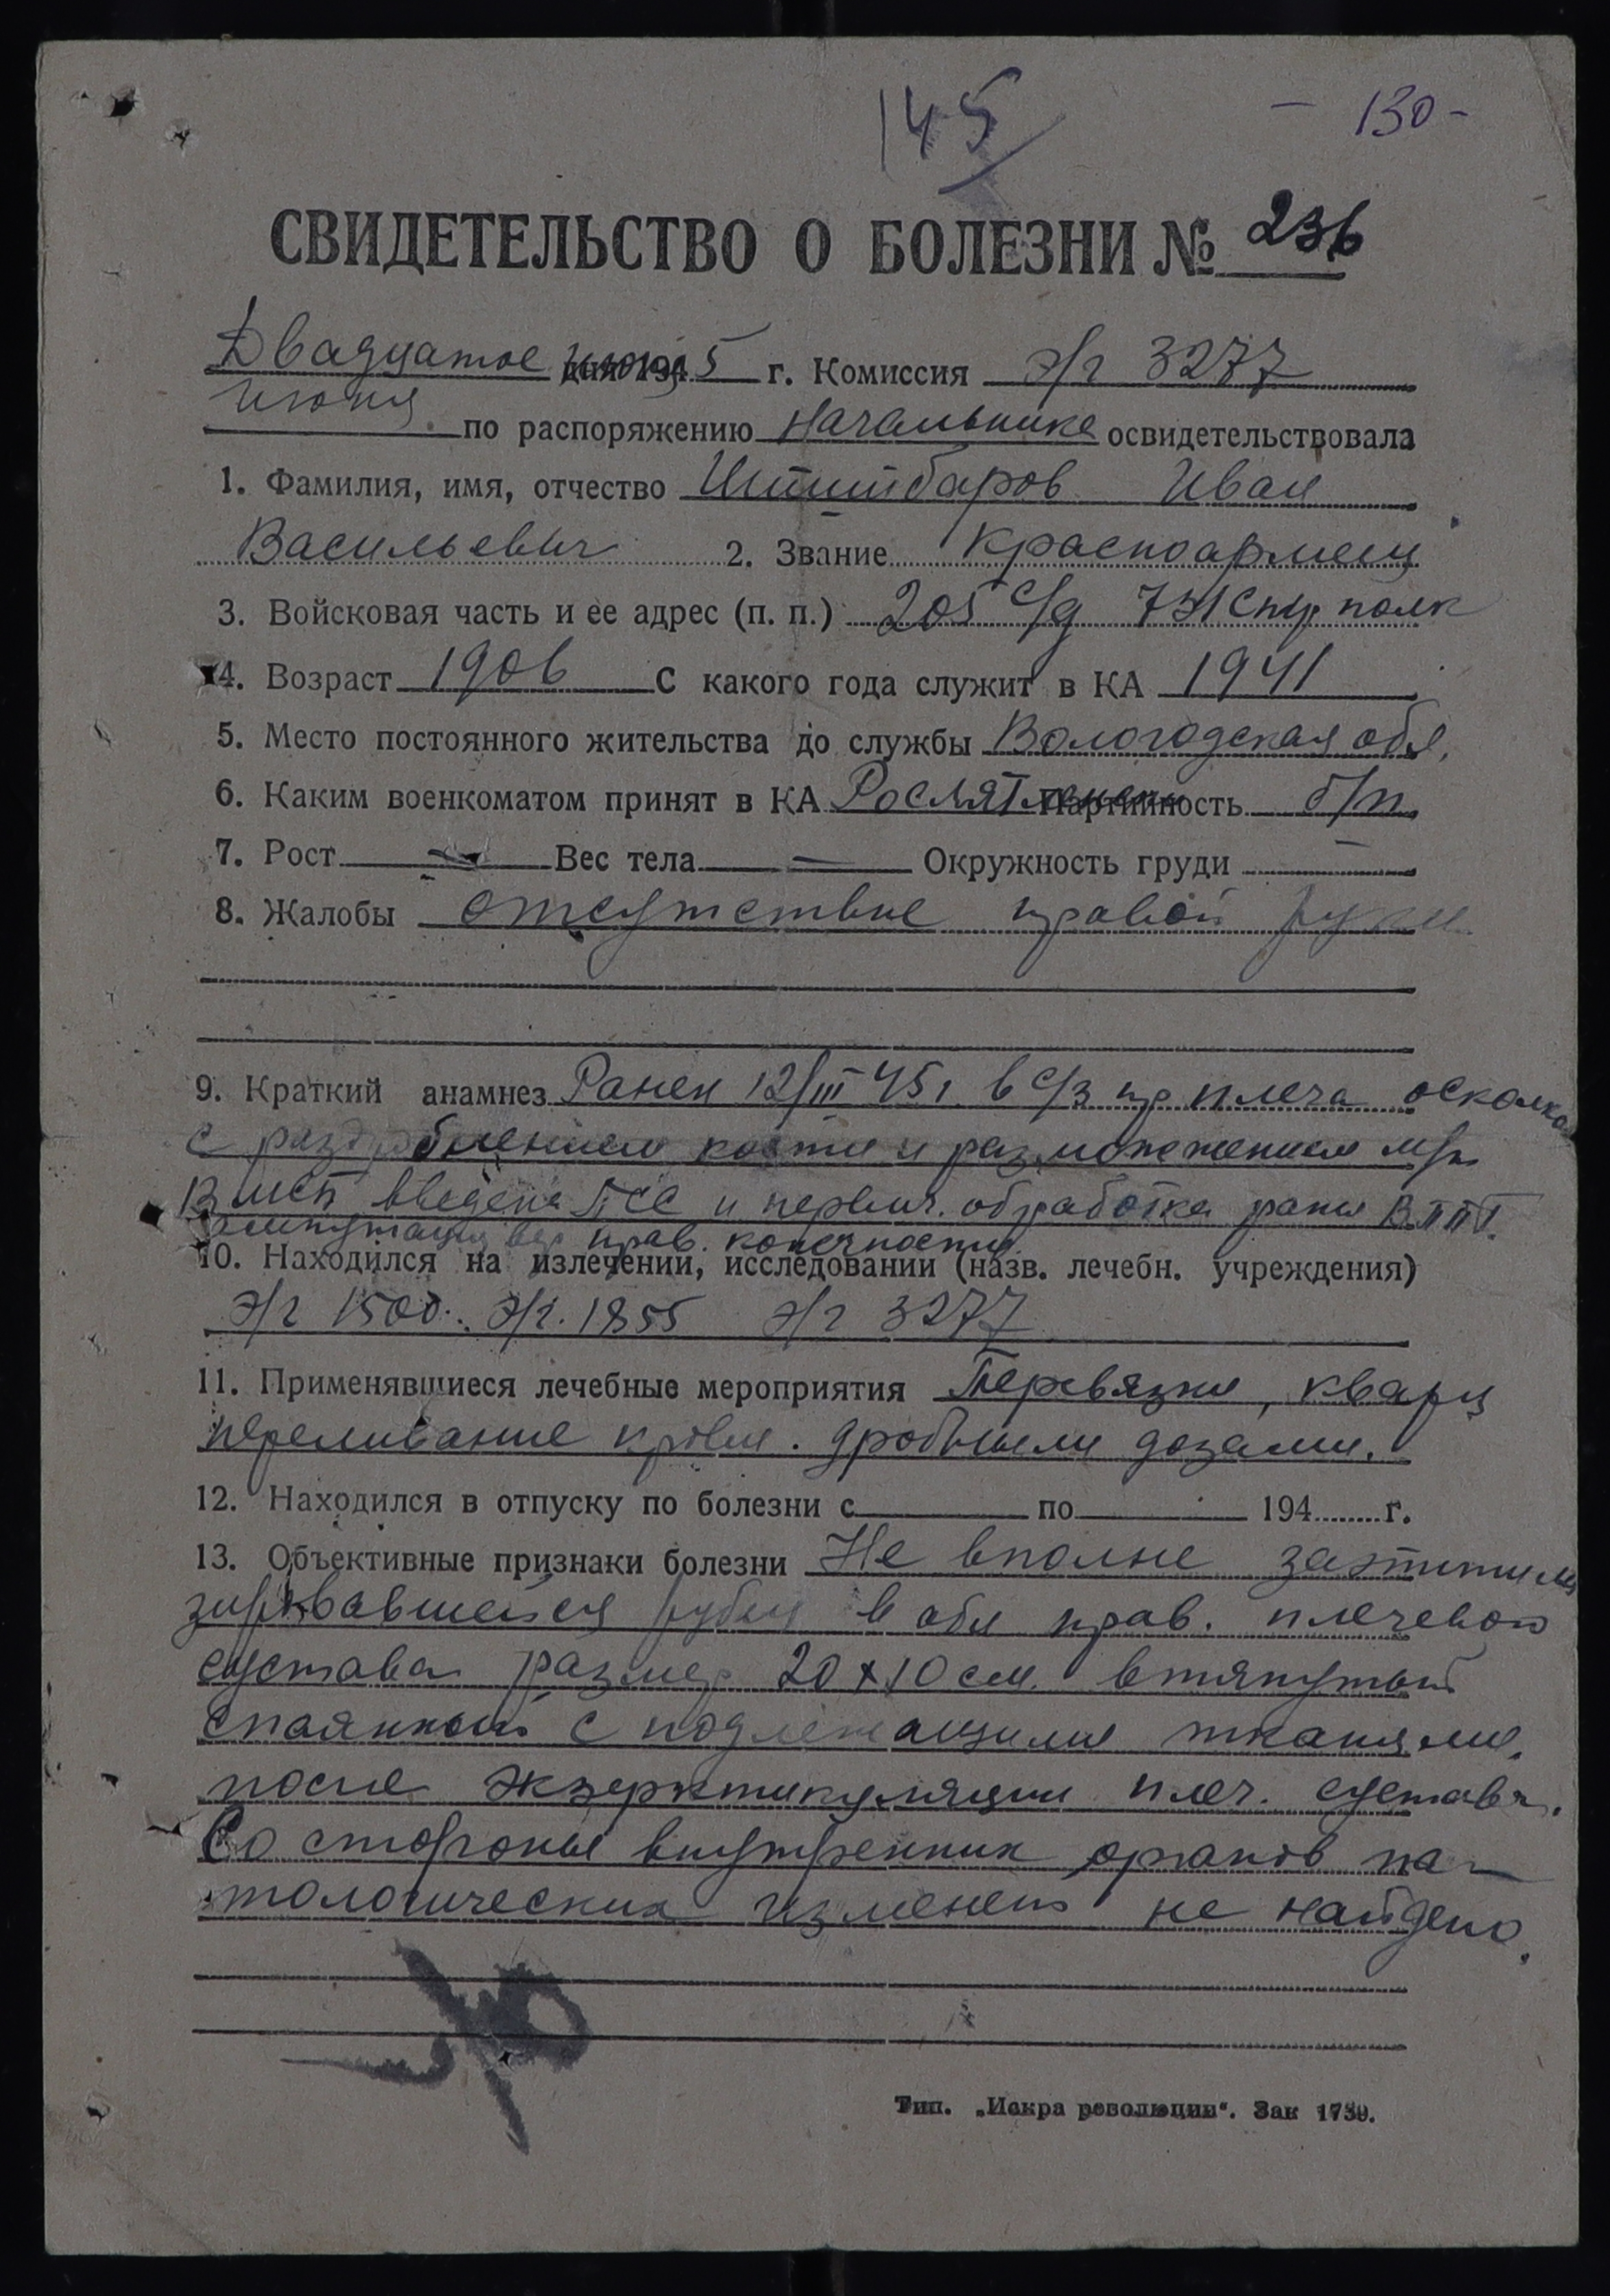 145
- 130 -
СВИДЕТЕЛЬСТВО О БОЛЕЗНИ № 236
Двадцатое дня 1945 г. Комиссия э/г 3277
июня по распоряжению Начальника освидетельствовала
1. Фамилия, имя, отчество Иван
Васильевич 2. Звание Красноармеец
3. Войсковая часть и ее адрес (п. п.) 205 с/д 731 стр полк
4. Возраст 1906 С какого года служит в КА 1941
5. Место постоянного жительства до службы Вологодская обл.
6. Каким военкоматом принят в КА Рослятински Партийность б/п
7. Рост — Вес тела — Окружность груди
8. Жалобы отсутствие правой руки
9. Краткий анамнез Ранен 12/III 45 г. в с/з пр плеча осколком
с раздроблением кости и размозжением мяг.
В МСП введена ПСС и первич. обработка раны В ППГ.
ампутация вер прав. конечности.
10. Находился на излечении, исследовании (назв. лечебн. учреждения)
э/г 1500. э/г. 1855 э/г 3277
11. Применявшиеся лечебные мероприятия Перевязки, кварц
переливание крови. дробными дозами.
12. Находился в отпуску по болезни с по 194 г.
13. Объективные признаки болезни Не вполне заэпители
зировавшейся рубец в обл прав. плечевого
сустава размер 20 х 10 см. втянутый
спаянный с подлежащими тканями,
после экзартикуляции плеч. сустава.
Со стороны внутренних органов па-
тологических изменен не найдено.
Тип. „Искра революции“. Зак 1739.